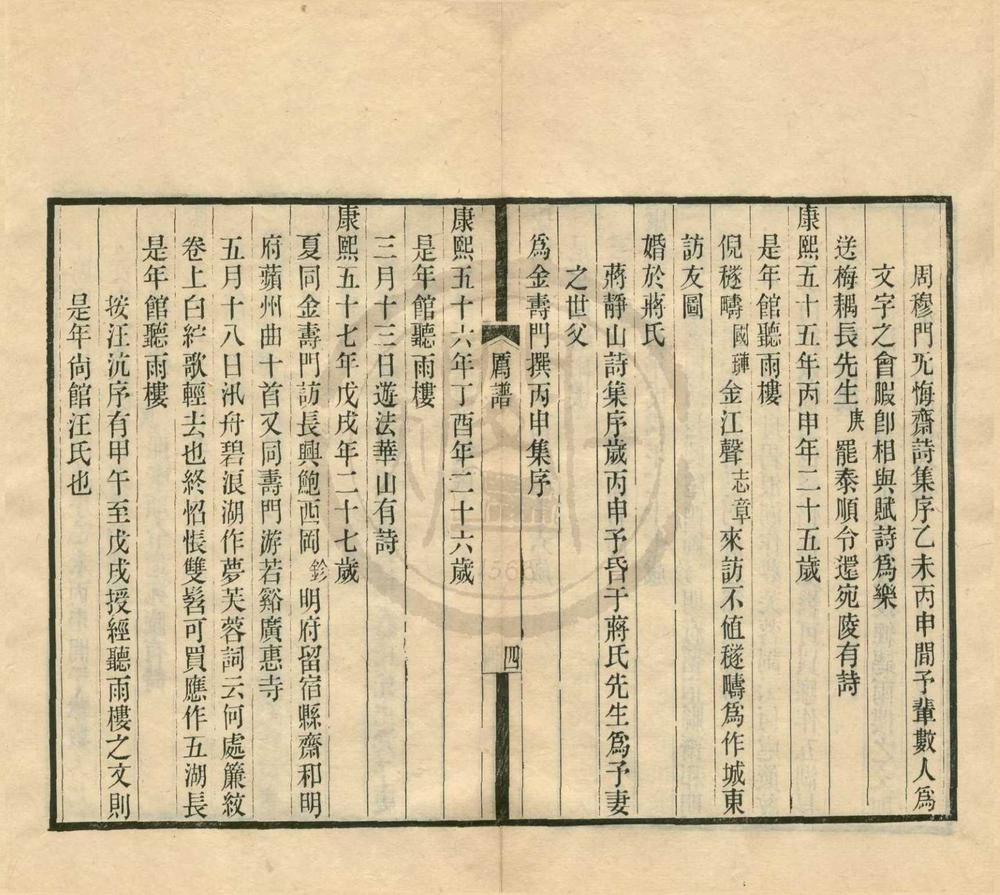 周穆門无悔齋詩集序乙未丙申間予輩數人為
文字之會暇卽相與賦詩為樂
送梅耦長先生庚罷泰順令還宛陵有詩
康熙五十五年丙申年二十五歲
是年館聽雨樓
倪穟疇國璉金江聲志章來訪不值穟疇為作城東
訪友圖
婚於蔣氏
蔣靜山詩集序歲丙申予昏于蔣氏先生為予妻
之世父
為金壽門撰丙申集序
厲譜
四
康熙五十六年丁酉年二十六歲
是年館聽雨樓
三月十三日遊法華山有詩
康熙五十七年戊戌年二十七歲
夏同金壽門訪長興鮑西岡鉁明府留宿縣齋和明
府蘋州曲十首又同壽門游若谿廣惠寺
五月十八日汎舟碧浪湖作夢芙蓉詞云何處簾紋
卷上白紵歌輕去也終怊悵雙髻可買應作五湖長
是年館聽雨樓
按汪沆序有甲午至戊戌授經聽雨樓之文則
是年尙館汪氏也